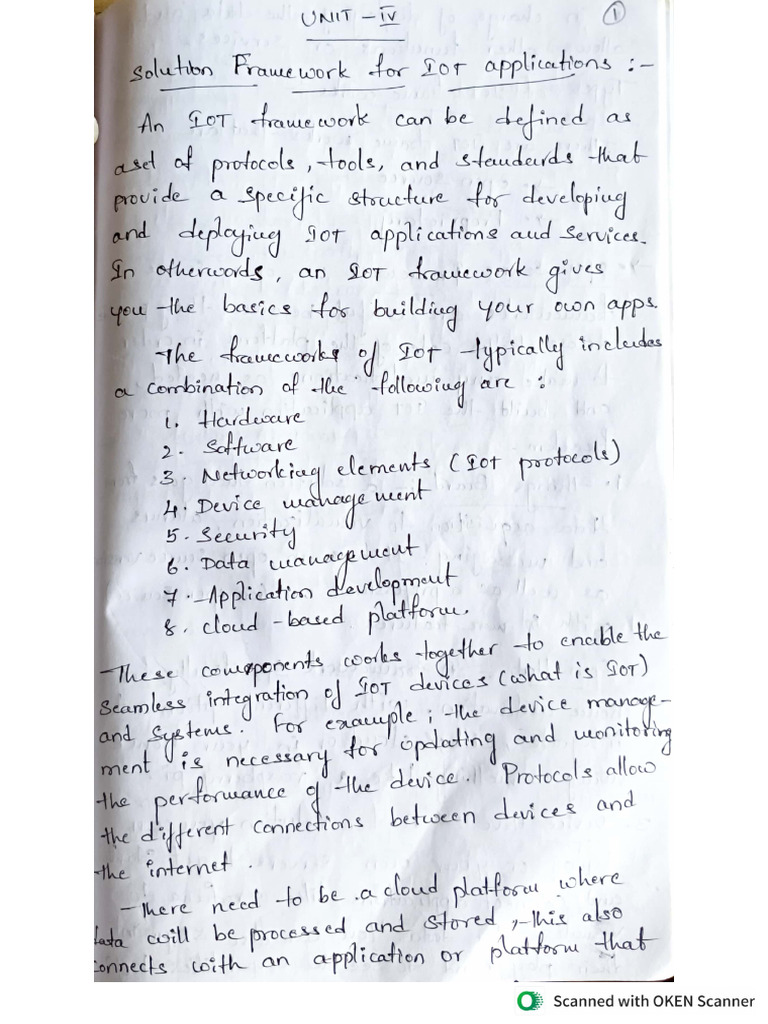 UNIT - IV
1
Solution Framework for IOT applications :-
An IOT framework can be defined as
aset of protocols, tools, and standards that
provide a specific structure for developing
and deploying IOT applications and services.
In otherwords, an IOT framework gives
you the basics for building your own apps.
The frameworks of IOT typically includes
a combination of the following are :
1. Hardware
2. Software
3. Networking elements (IOT protocols)
4. Device management
5. Security
6. Data management
7. Application development
8. cloud-based platform.
These components works together to enable the
seamless integration of IOT devices (what is IOT)
and systems. For example ; the device manage-
ment is necessary for updating and monitoring
the performance of the device. Protocols allow
the different connections between devices and
the internet.
There need to be a cloud platform where
data will be processed and stored, this also
connects with an application or platform that
Scanned with OKEN Scanner